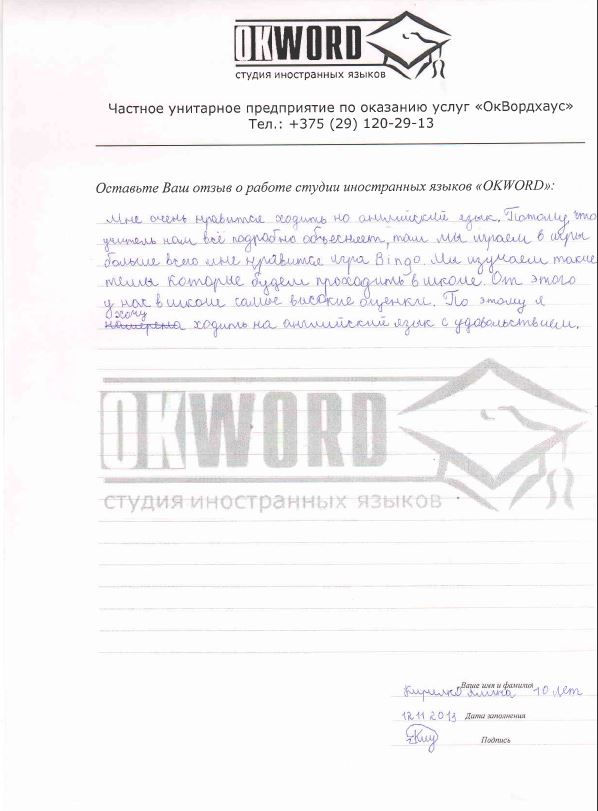 OKWORD
студия иностранных языков
Частное унитарное предприятие по оказанию услуг «ОкВордхаус»
Тел.: +375 (29) 120-29-13
Оставьте Ваш отзыв о работе студии иностранных языков «OKWORD»:
Мне очень нравится ходить на английский язык. Потому, что
учитель нам всё подробно объесняет, там мы играем в игры
больше всего мне нравится игра Bingo. Мы изучаем такие
темы которые будем проходить в школе. От этого
у нас в школе самые высокие оценки. По этому я
хочу
намерена ходить на английский язык с удовольствием.
OKWORD
студия иностранных языков
Ваше имя и фамилия
Кирилко Ялина 10 лет
12.11.2013 Дата заполнения
Подпись